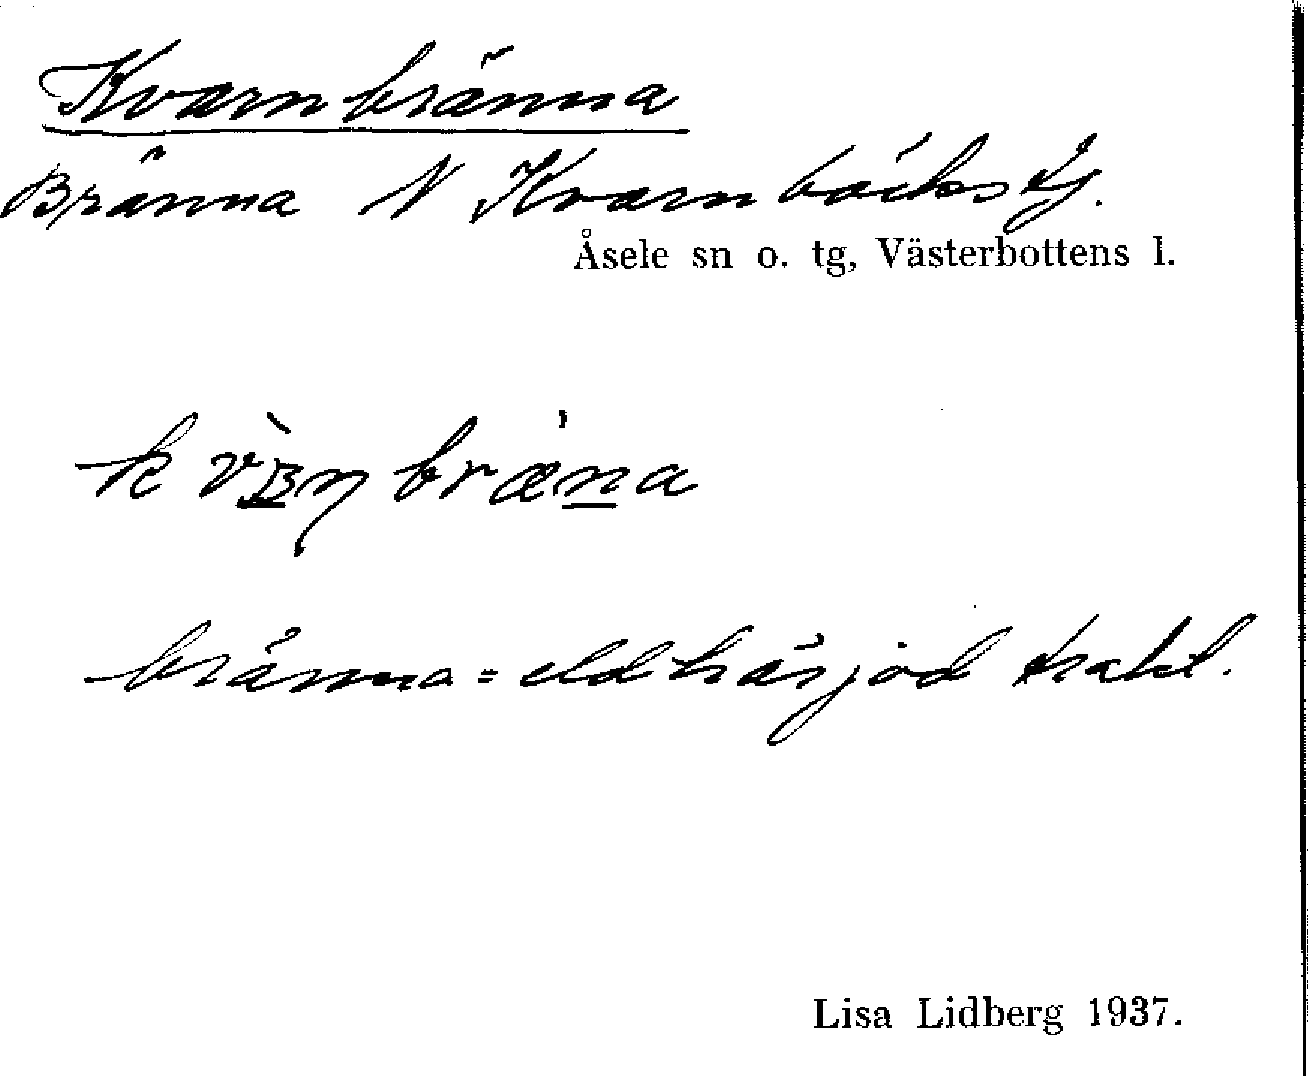 Kvarnbränna
Bränna N Kvarnbäckstj.
Åsele sn o. tg, Västerbottens l.
bränna = eldhärjad trakt.
Lisa Lidberg 1937.